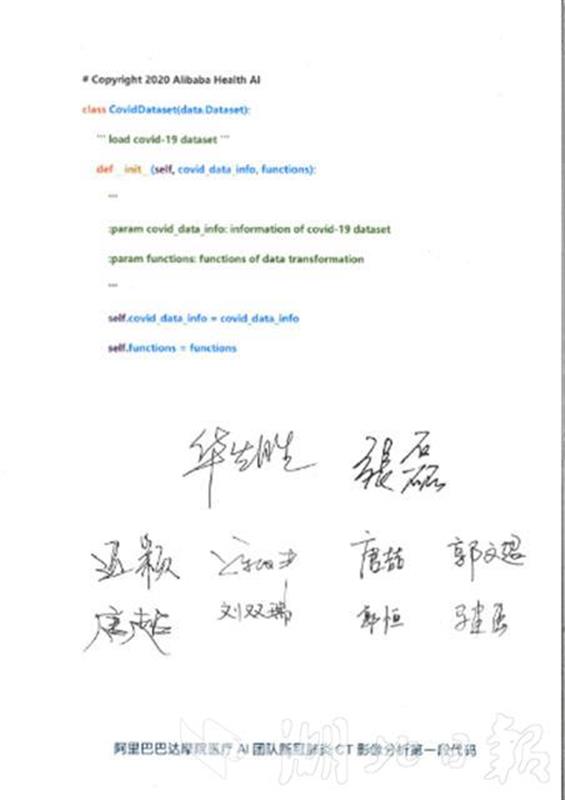 # Copyright 2020 Alibaba Health AI
class CovidDataset(data.Dataset):
''' load covid-19 dataset '''
def _init_ (self, covid_data_info, functions):
'''
:param covid_data_info: information of covid-19 dataset
:param functions: functions of data transformation
'''
self.covid_data_info = covid_data_info
self.functions = functions
华先胜 張磊
颖 唐喆 郭文
唐超 刘双瑞 郭恒
阿里巴巴达摩院医疗 AI 团队新冠肺炎 CT 影像分析第一段代码
湖北日報